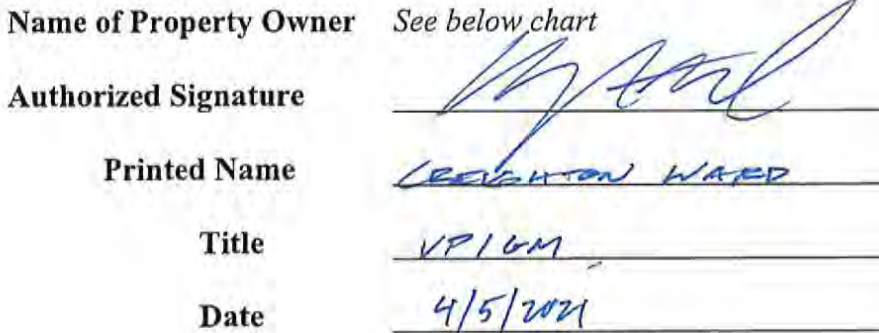 Name of Property Owner See below chart
Authorized Signature
Printed Name CREIGHTON WARD
Title VP/GM
Date 4/5/2021